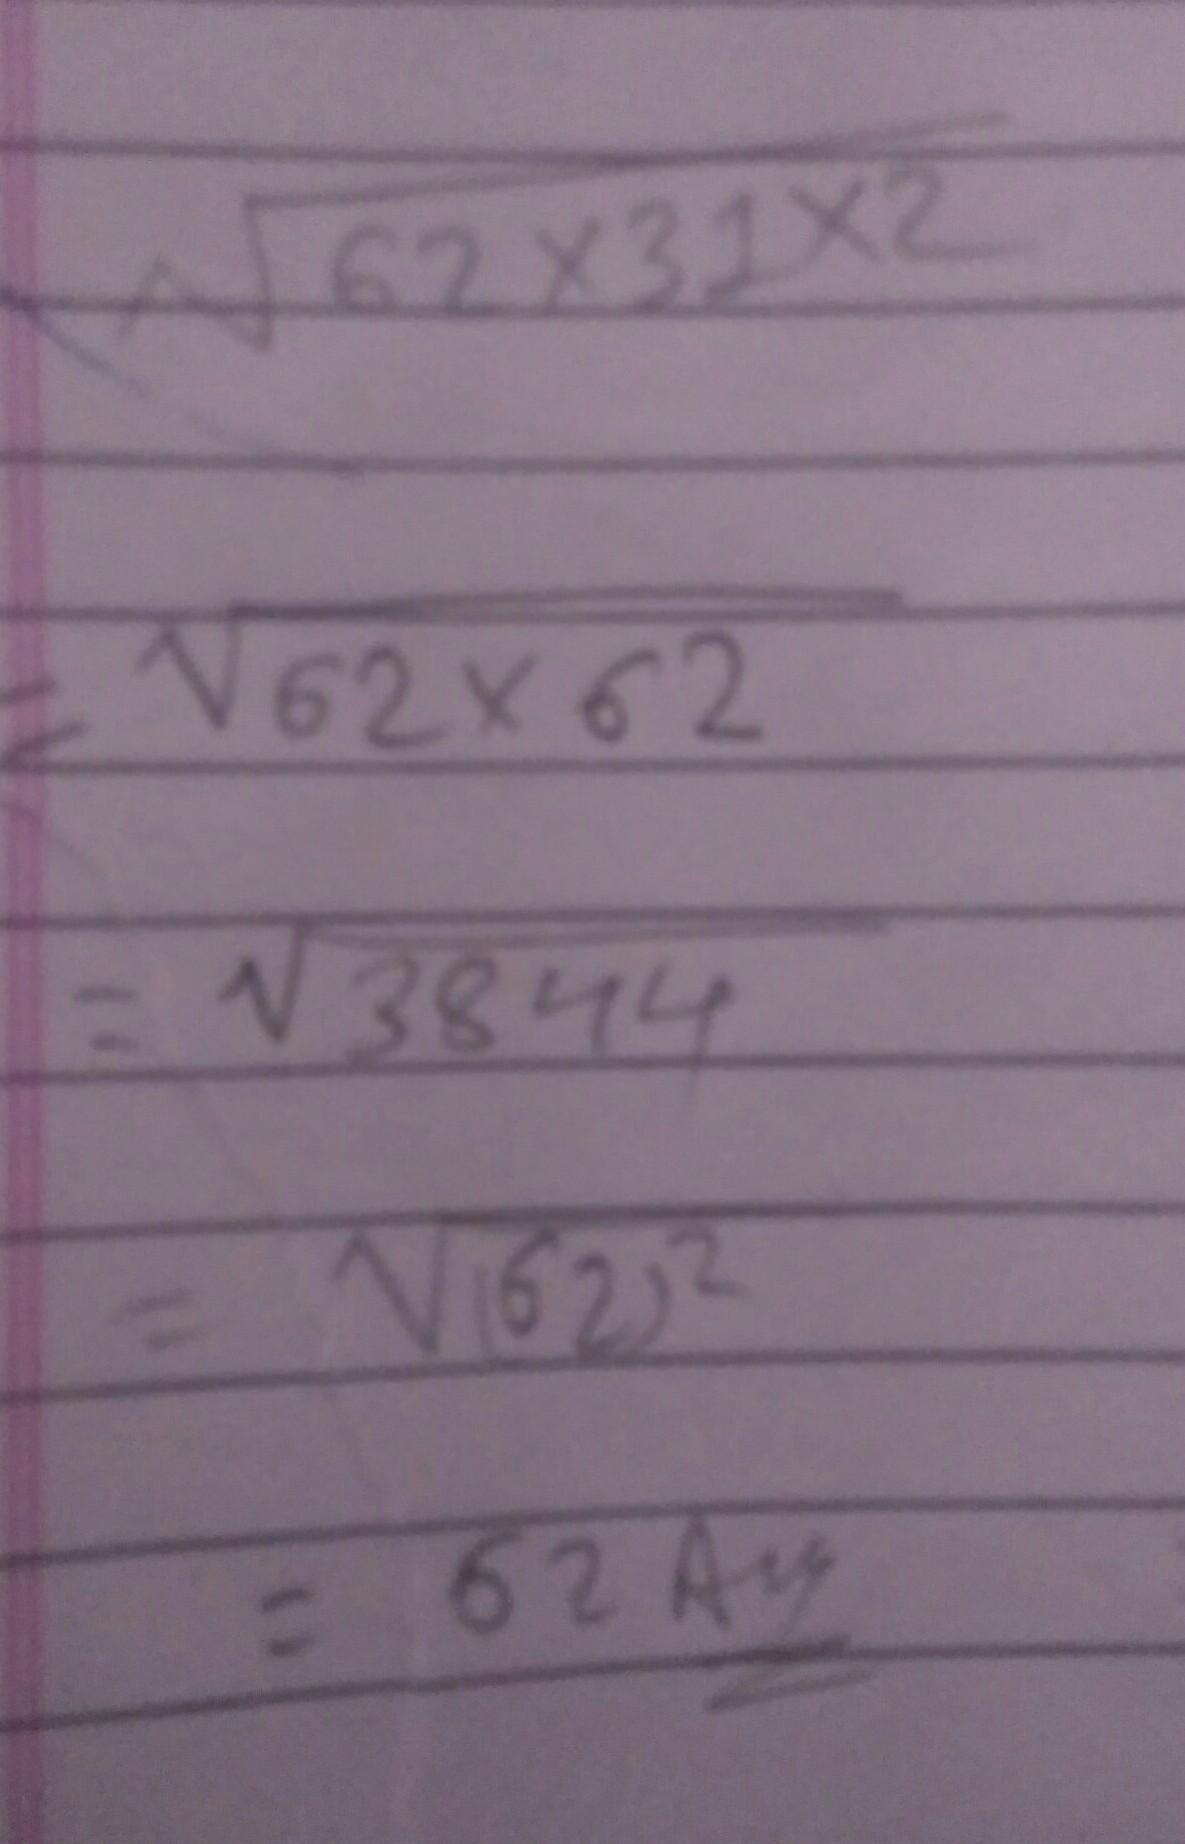 √62×31×2
= √62×62
= √3844
= √(62)²
= 62 Ans